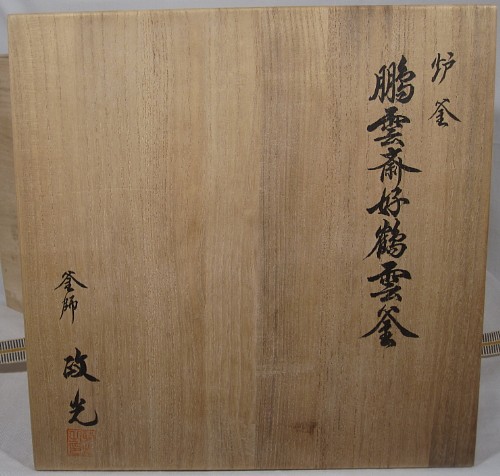 炉釜
鵬雲斎好鶴雲釜
釜師 政光